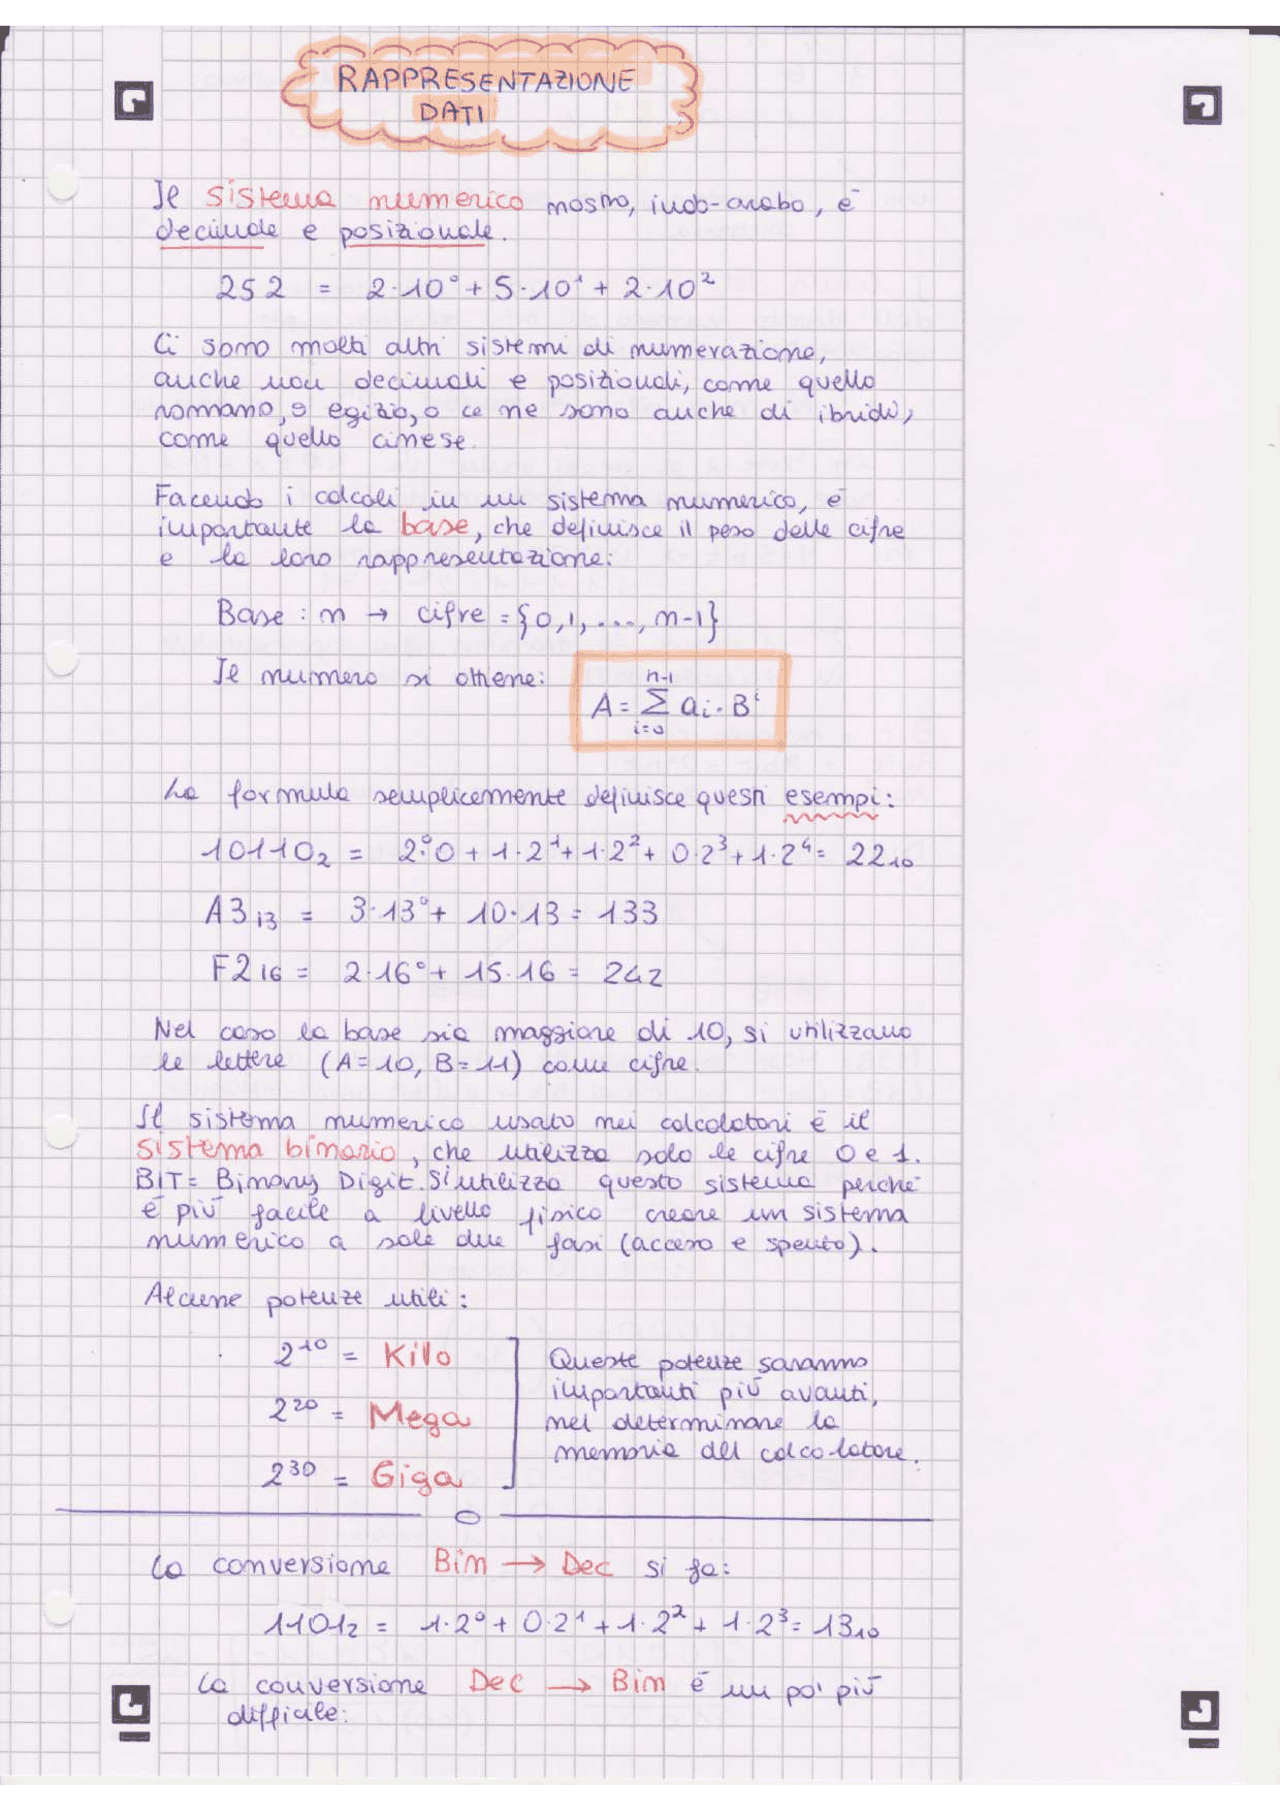 RAPPRESENTAZIONE
DATI
Il sistema numerico nostro, indo-arabo, è
decimale e posizionale.
252 = 2·10⁰ + 5·10¹ + 2·10²
Ci sono molti altri sistemi di numerazione,
anche non decimali e posizionali, come quello
romano, o egizio, o ce ne sono anche di ibridi,
come quello cinese.
Facendo i calcoli in un sistema numerico, è
importante la base, che definisce il peso delle cifre
e la loro rappresentazione:
Base : n → cifre = {0,1, ..., n-1}
Il numero si ottiene:
A = Σ_{i=0}^{n-1} aᵢ · Bⁱ
La formula semplicemente definisce questi esempi:
10110₂ = 2⁰·0 + 1·2¹ + 1·2² + 0·2³ + 1·2⁴ = 22₁₀
A3₁₃ = 3·13⁰ + 10·13 = 133
F2₁₆ = 2·16⁰ + 15·16 = 242
Nel caso la base sia maggiore di 10, si utilizzano
le lettere (A=10, B=11) come cifre.
Il sistema numerico usato nei calcolatori è il
sistema binario, che utilizza solo le cifre 0 e 1.
BIT = Binary Digit. Si utilizza questo sistema perché
è più facile a livello fisico creare un sistema
numerico a sole due fasi (acceso e spento).
Alcune potenze utili:
2¹⁰ = Kilo
2²⁰ = Mega
2³⁰ = Giga
Queste potenze saranno
importanti più avanti,
nel determinare la
memoria del calcolatore.
La conversione Bin → Dec si fa:
1101₂ = 1·2⁰ + 0·2¹ + 1·2² + 1·2³ = 13₁₀
La conversione Dec → Bin è un po' più
difficile: